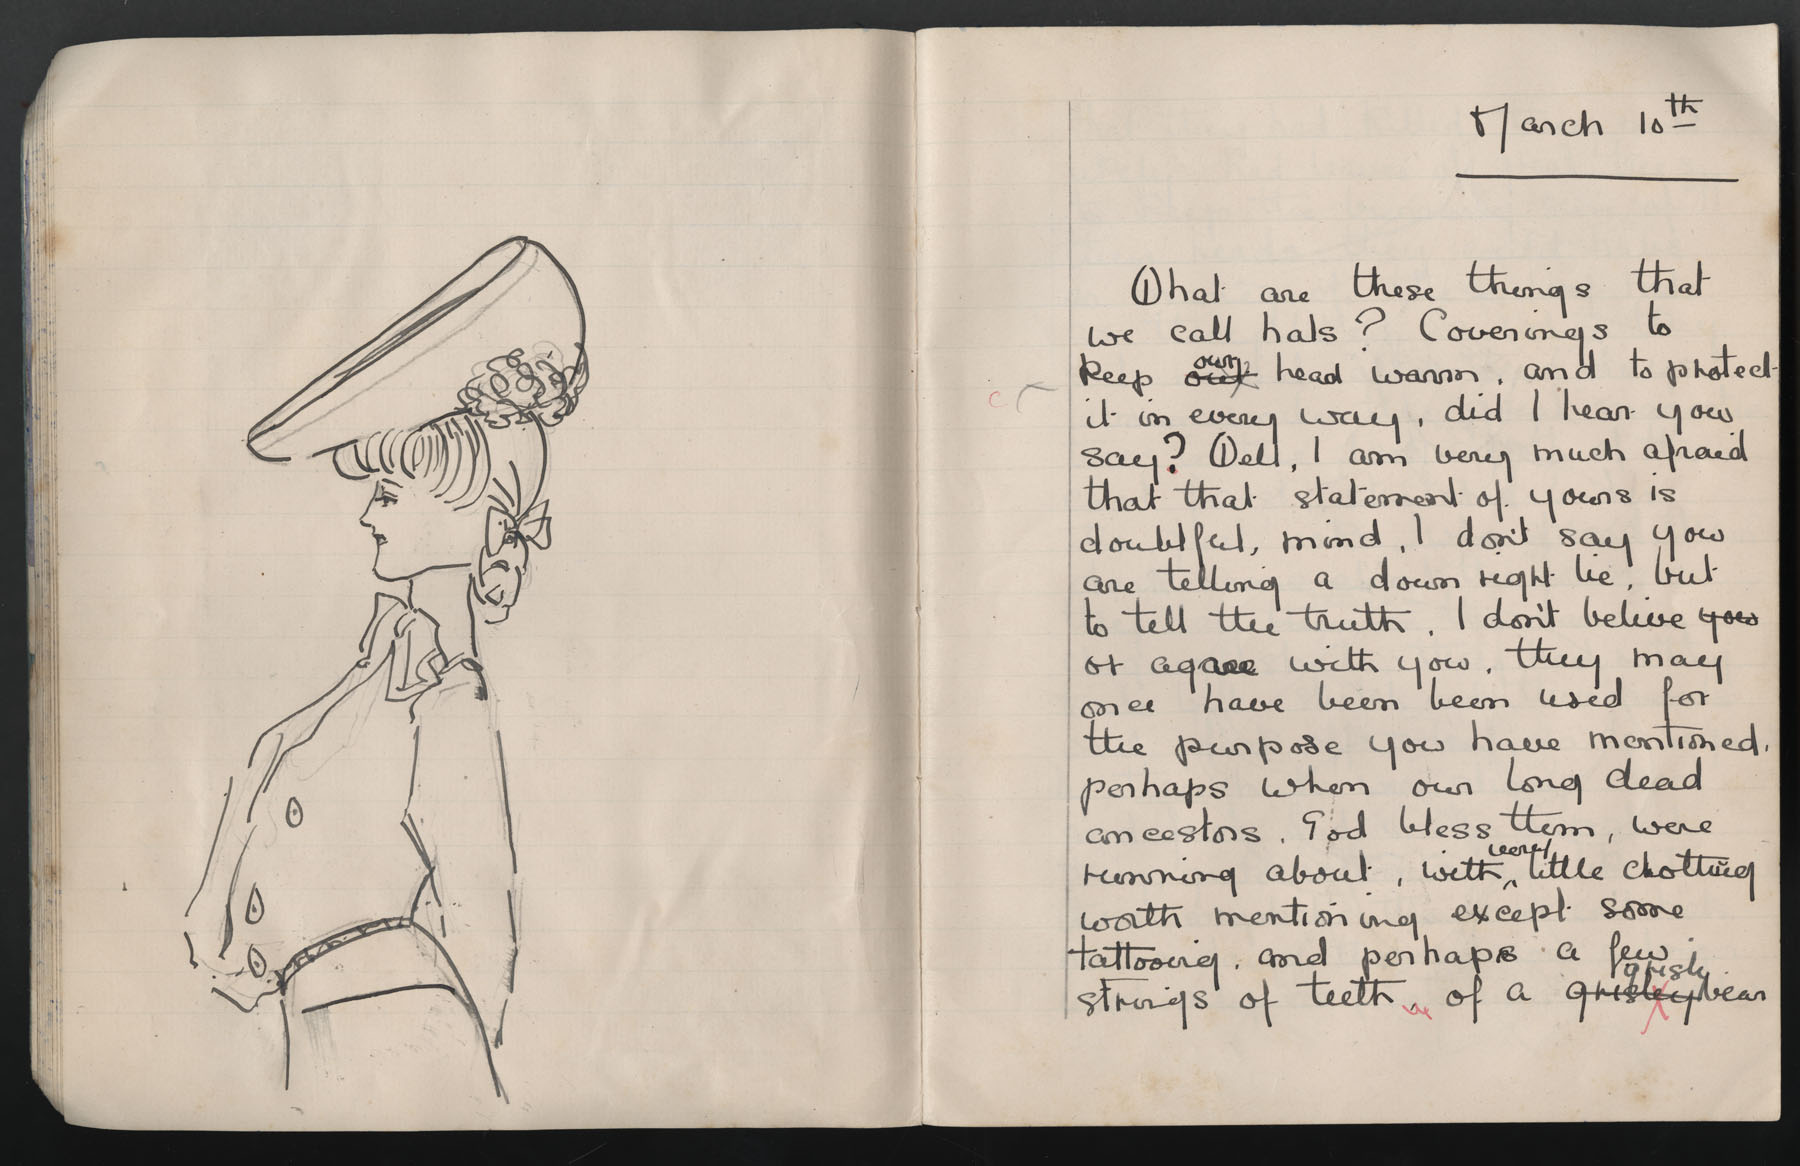 March 10th
What are these things that
we call hats? Coverings to
our
keep out head warm, and to protect
it in every way, did I hear you
say? Well, I am very much afraid
that that statement of yours is
doubtful, mind, I don't say you
are telling a down right lie, but
to tell the truth, I don't belive you
or agree with you, they may
once have been been used for
the purpose you have mentioned,
perhaps when our long dead
ancestors, God bless them, were
very
running about, with little clothing
worth mentioning except some
tattooing, and perhaps a few
grisly
strings of teeth of a grisley bear